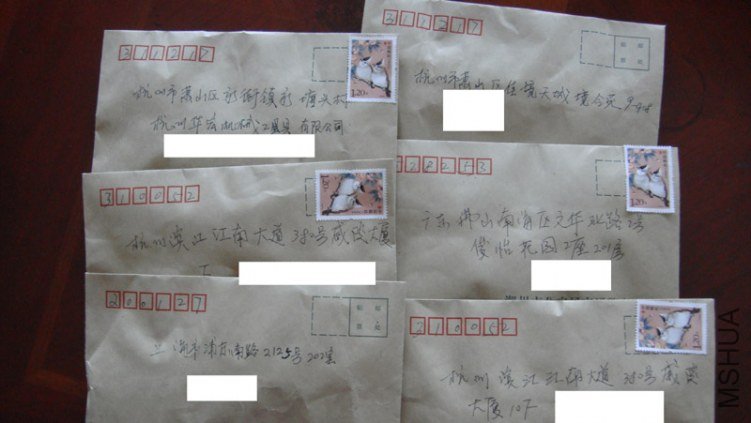 311217
杭州市萧山区新街镇新塘头村
杭州华宏机械工具有限公司
1.20元
311217
杭州市萧山区佳境天城境合苑
贴邮
票处
310052
杭州滨江江南大道380号威陵大厦
1.20元
528253
广东佛山南海区文华北路2号
俊怡花园2座201房
1.20元
200127
贴邮
票处
上海市浦东南路2125号202室
310052
杭州滨江江南大道380号威陵
大厦10F
1.20元
MSHUA